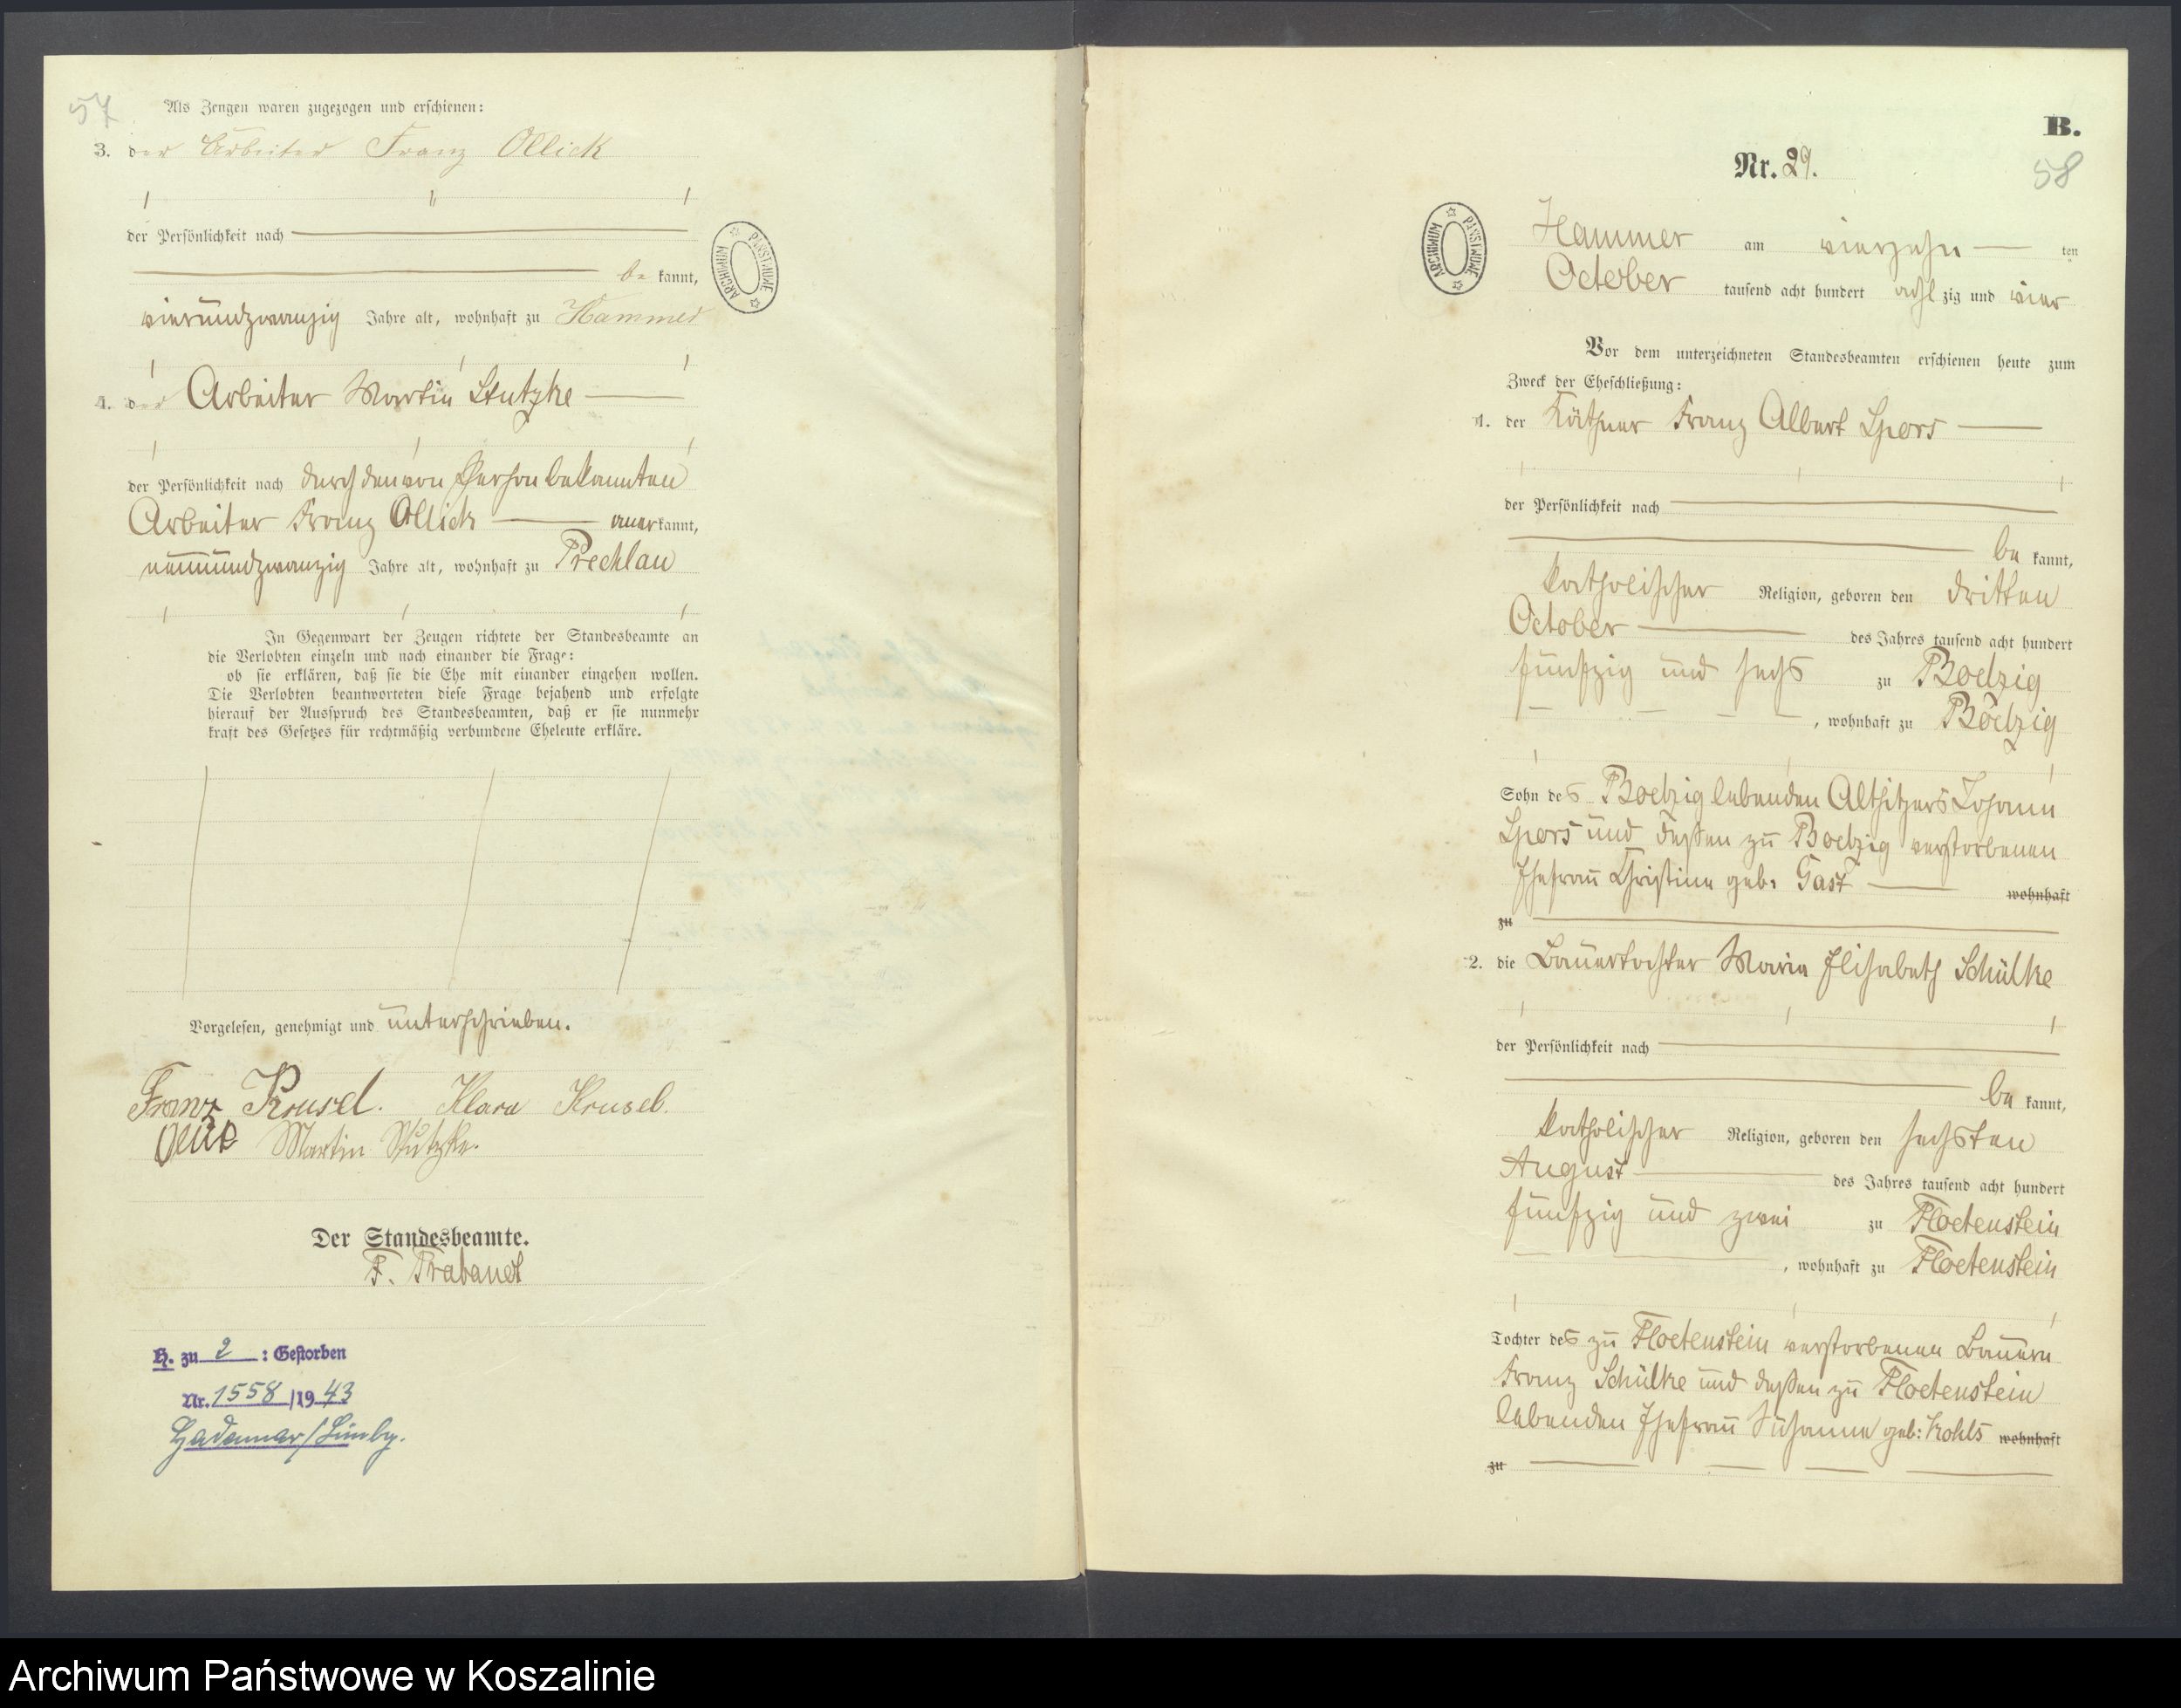 57
Als Zeugen waren zugezogen und erschienen:
3. der Arbeiter Franz Ollick
der Persönlichkeit nach
be kannt,
vierundzwanzig Jahre alt, wohnhaft zu Hammer
4. der Arbeiter Martin Stutzke
der Persönlichkeit nach durch den von Person bekannten
Arbeiter Franz Ollick anerkannt,
neunundzwanzig Jahre alt, wohnhaft zu Prechlau
In Gegenwart der Zeugen richtete der Standesbeamte an
die Verlobten einzeln und nach einander die Frage:
ob sie erklären, daß sie die Ehe mit einander eingehen wollen.
Die Verlobten beantworteten diese Frage bejahend und erfolgte
hierauf der Ausspruch des Standesbeamten, daß er sie nunmehr
kraft des Gesetzes für rechtmäßig verbundene Eheleute erkläre.
Vorgelesen, genehmigt und unterschrieben.
Franz Krusel. Klara Krusel.
Martin Stutzke.
Der Standesbeamte.
F. Trabandt
H. zu 2 : Gestorben
Nr. 1558 /19 43
Hadamar/Limbg.
ARCHIWUM PAŃSTWOWE
B.
58
Nr. 29.
ARCHIWUM PAŃSTWOWE
Hammer am vierzehn ten
October tausend acht hundert achtzig und vier
Vor dem unterzeichneten Standesbeamten erschienen heute zum
Zweck der Eheschließung:
1. der Käthner Franz Albert Spors
der Persönlichkeit nach
be kannt,
katholischer Religion, geboren den dritten
October des Jahres tausend acht hundert
fünfzig und sechs zu Boetzig
, wohnhaft zu Boetzig
Sohn des Boetzig lebenden Altsitzers Johann
Spors und dessen zu Boetzig verstorbenen
Ehefrau Christine geb. Gast wohnhaft
zu
2. die Bauertochter Maria Elisabeth Schülke
der Persönlichkeit nach
be kannt,
katholischer Religion, geboren den sechsten
August des Jahres tausend acht hundert
fünfzig und zwei zu Floetenstein
, wohnhaft zu Floetenstein
Tochter des zu Floetenstein verstorbenen Bauern
Franz Schülke und dessen zu Floetenstein
lebenden Ehefrau Susanne geb: Kohls wohnhaft
zu
Archiwum Państwowe w Koszalinie